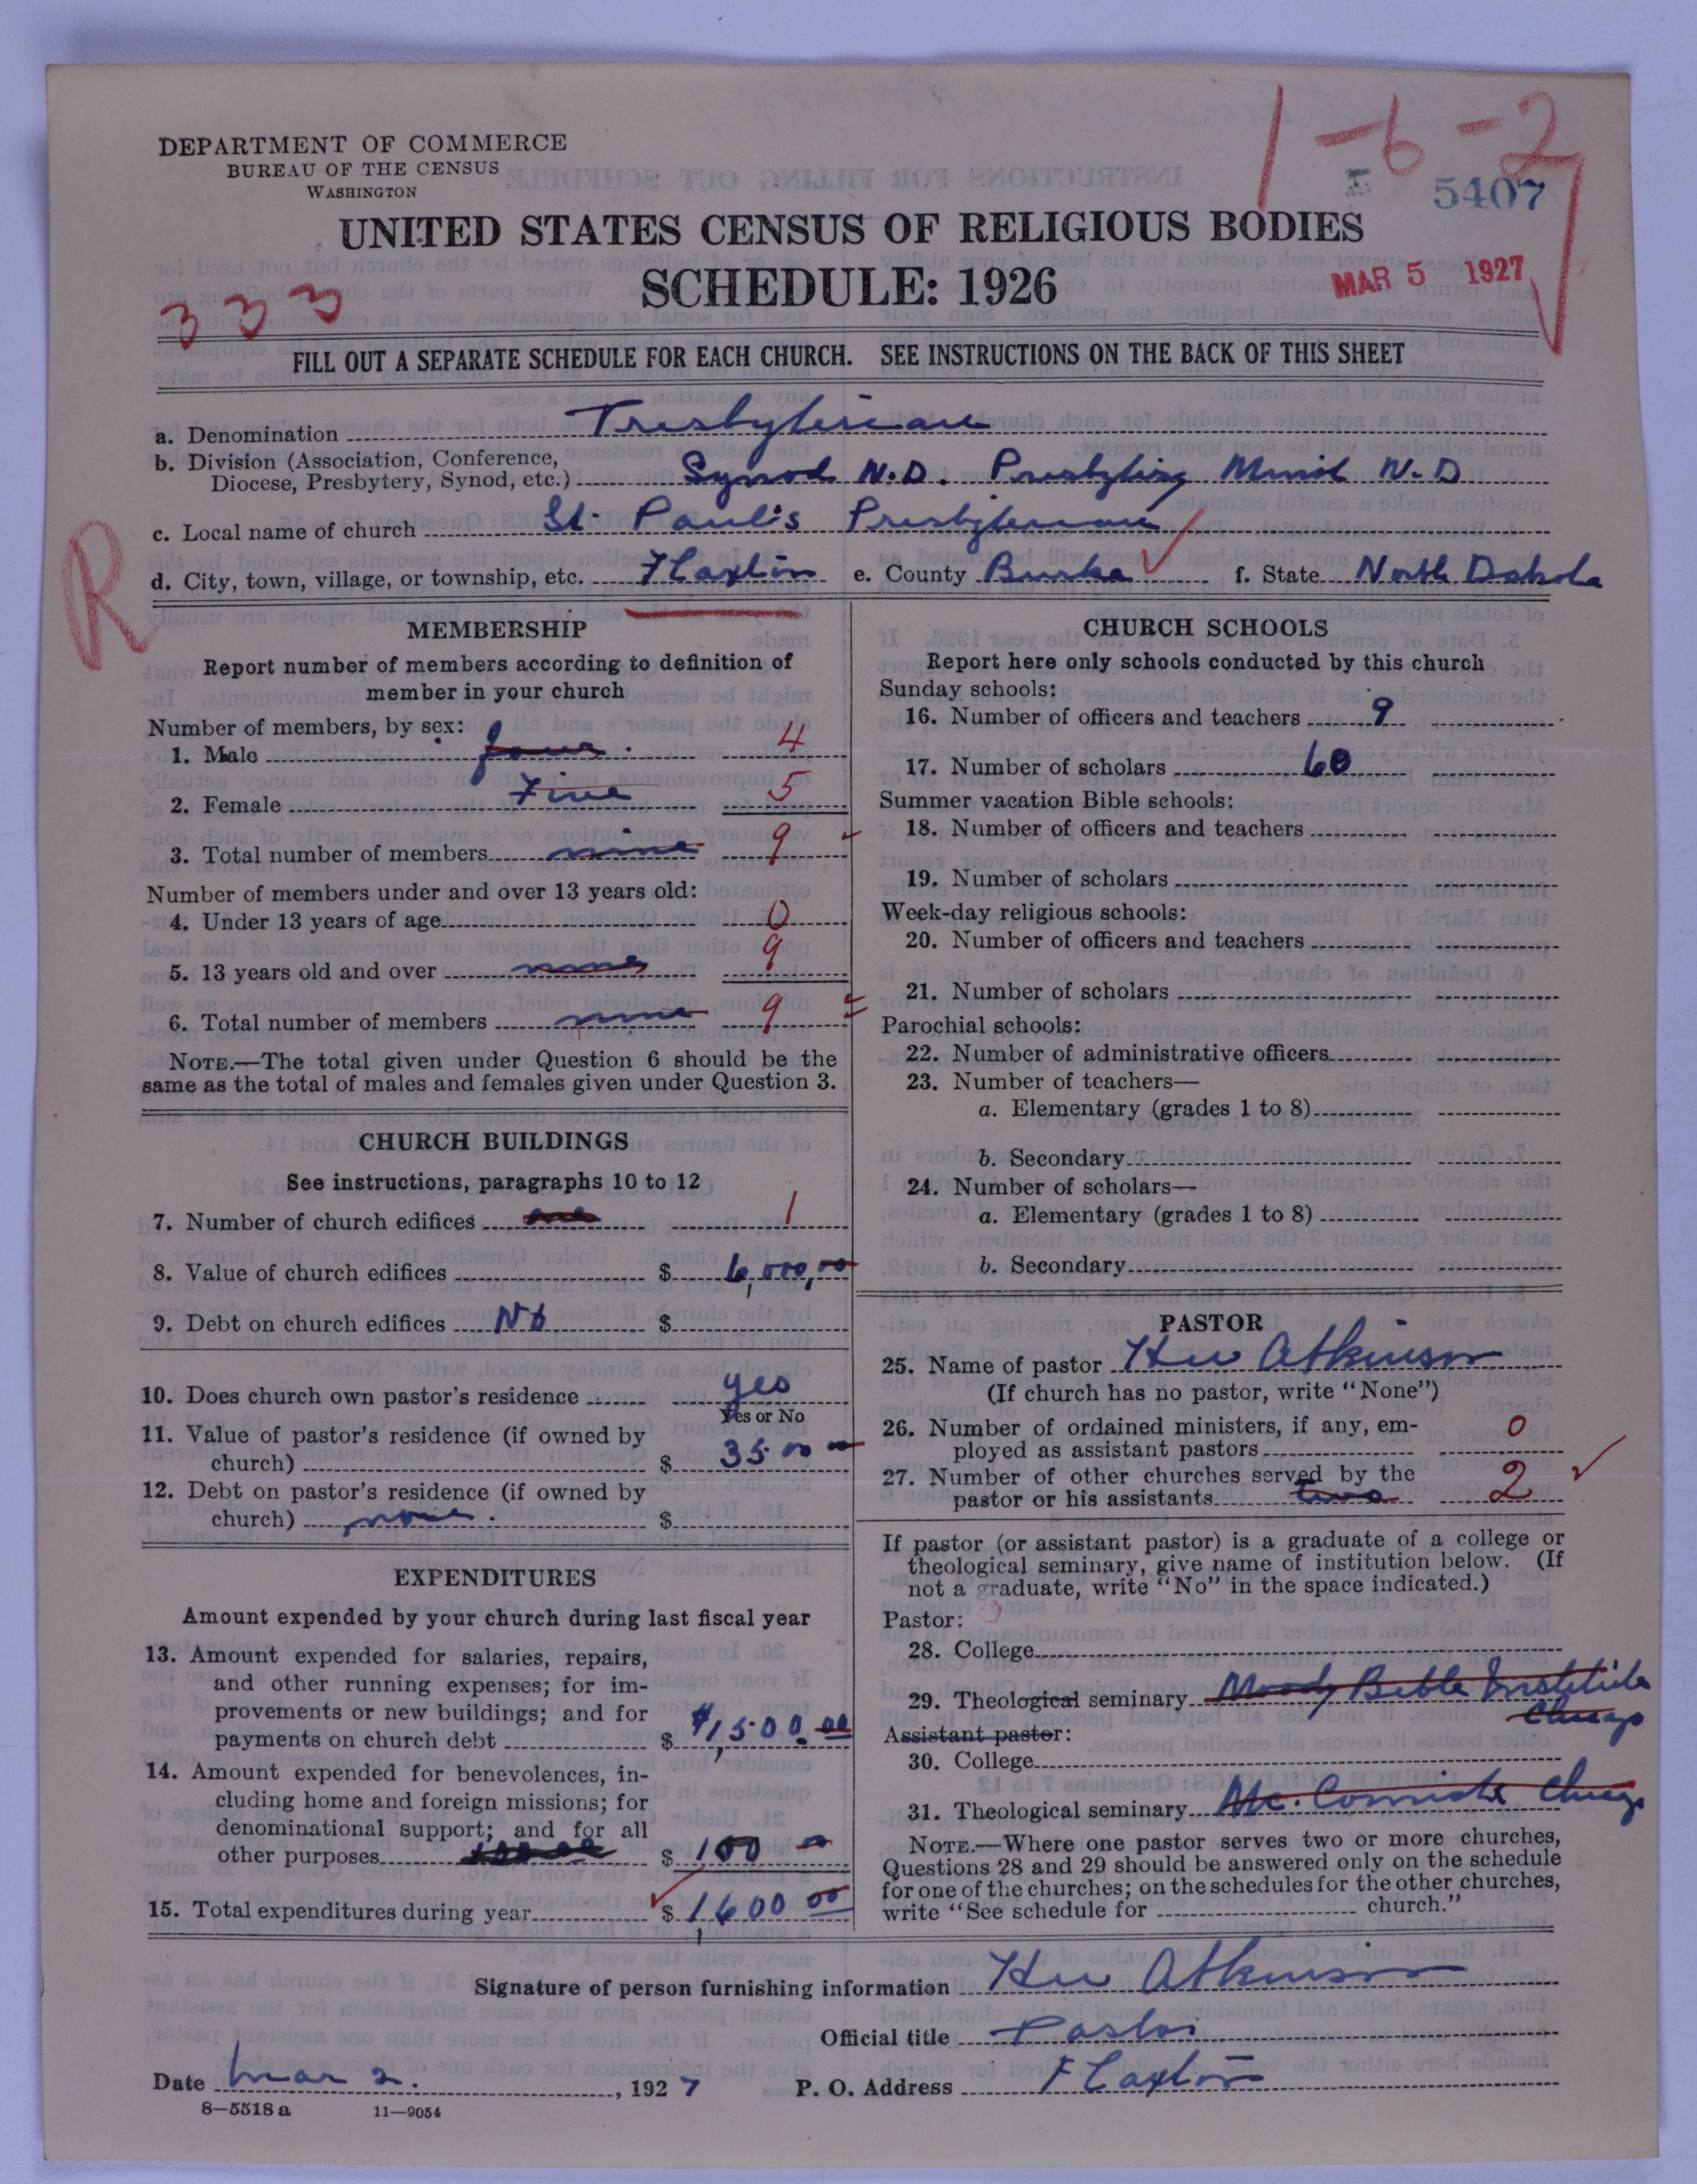 1-6-2
DEPARTMENT OF COMMERCE
BUREAU OF THE CENSUS
WASHINGTON
5407
UNITED STATES CENSUS OF RELIGIOUS BODIES
SCHEDULE: 1926
MAR 5 1927
333
FILL OUT A SEPARATE SCHEDULE FOR EACH CHURCH. SEE INSTRUCTIONS ON THE BACK OF THIS SHEET
a. Denomination Presbyterian
b. Division (Association, Conference,
Diocese, Presbytery, Synod, etc.) Synod N.D. Presbytery Minot N.D
c. Local name of church St. Paul's Presbyterian
d. City, town, village, or township, etc. Flaxton e. County Burke f. State North Dakota
R
MEMBERSHIP
Report number of members according to definition of
member in your church
Number of members, by sex:
1. Male four. 4
2. Female Five 5
3. Total number of members nine 9
Number of members under and over 13 years old:
4. Under 13 years of age 0
5. 13 years old and over nine 9
6. Total number of members nine 9
NOTE.—The total given under Question 6 should be the
same as the total of males and females given under Question 3.
CHURCH BUILDINGS
See instructions, paragraphs 10 to 12
7. Number of church edifices one 1
8. Value of church edifices $ 6,000,00
9. Debt on church edifices No $
10. Does church own pastor's residence yes
Yes or No
11. Value of pastor's residence (if owned by
church) $ 35 00 00
12. Debt on pastor's residence (if owned by
church) none. $
EXPENDITURES
Amount expended by your church during last fiscal year
13. Amount expended for salaries, repairs,
and other running expenses; for im-
provements or new buildings; and for
payments on church debt $ $1,500.00
14. Amount expended for benevolences, in-
cluding home and foreign missions; for
denominational support; and for all
other purposes $ 100 00
15. Total expenditures during year $ 1,600 00
CHURCH SCHOOLS
Report here only schools conducted by this church
Sunday schools:
16. Number of officers and teachers 9
17. Number of scholars 60
Summer vacation Bible schools:
18. Number of officers and teachers
19. Number of scholars
Week-day religious schools:
20. Number of officers and teachers
21. Number of scholars
Parochial schools:
22. Number of administrative officers
23. Number of teachers—
a. Elementary (grades 1 to 8)
b. Secondary
24. Number of scholars—
a. Elementary (grades 1 to 8)
b. Secondary
PASTOR
25. Name of pastor Hew Atkinson
(If church has no pastor, write "None")
26. Number of ordained ministers, if any, em-
ployed as assistant pastors 0
27. Number of other churches served by the
pastor or his assistants two 2
If pastor (or assistant pastor) is a graduate of a college or
theological seminary, give name of institution below. (If
not a graduate, write "No" in the space indicated.)
Pastor:
28. College
29. Theological seminary Moody Bible Institute
Chicago
Assistant pastor:
30. College
31. Theological seminary Mc. Cormick Chicago
NOTE.—Where one pastor serves two or more churches,
Questions 28 and 29 should be answered only on the schedule
for one of the churches; on the schedules for the other churches,
write "See schedule for church."
Signature of person furnishing information Hew Atkinson
Official title Pastor
Date Mar 2. , 1927 P. O. Address Flaxton
8—5518 a 11—9054